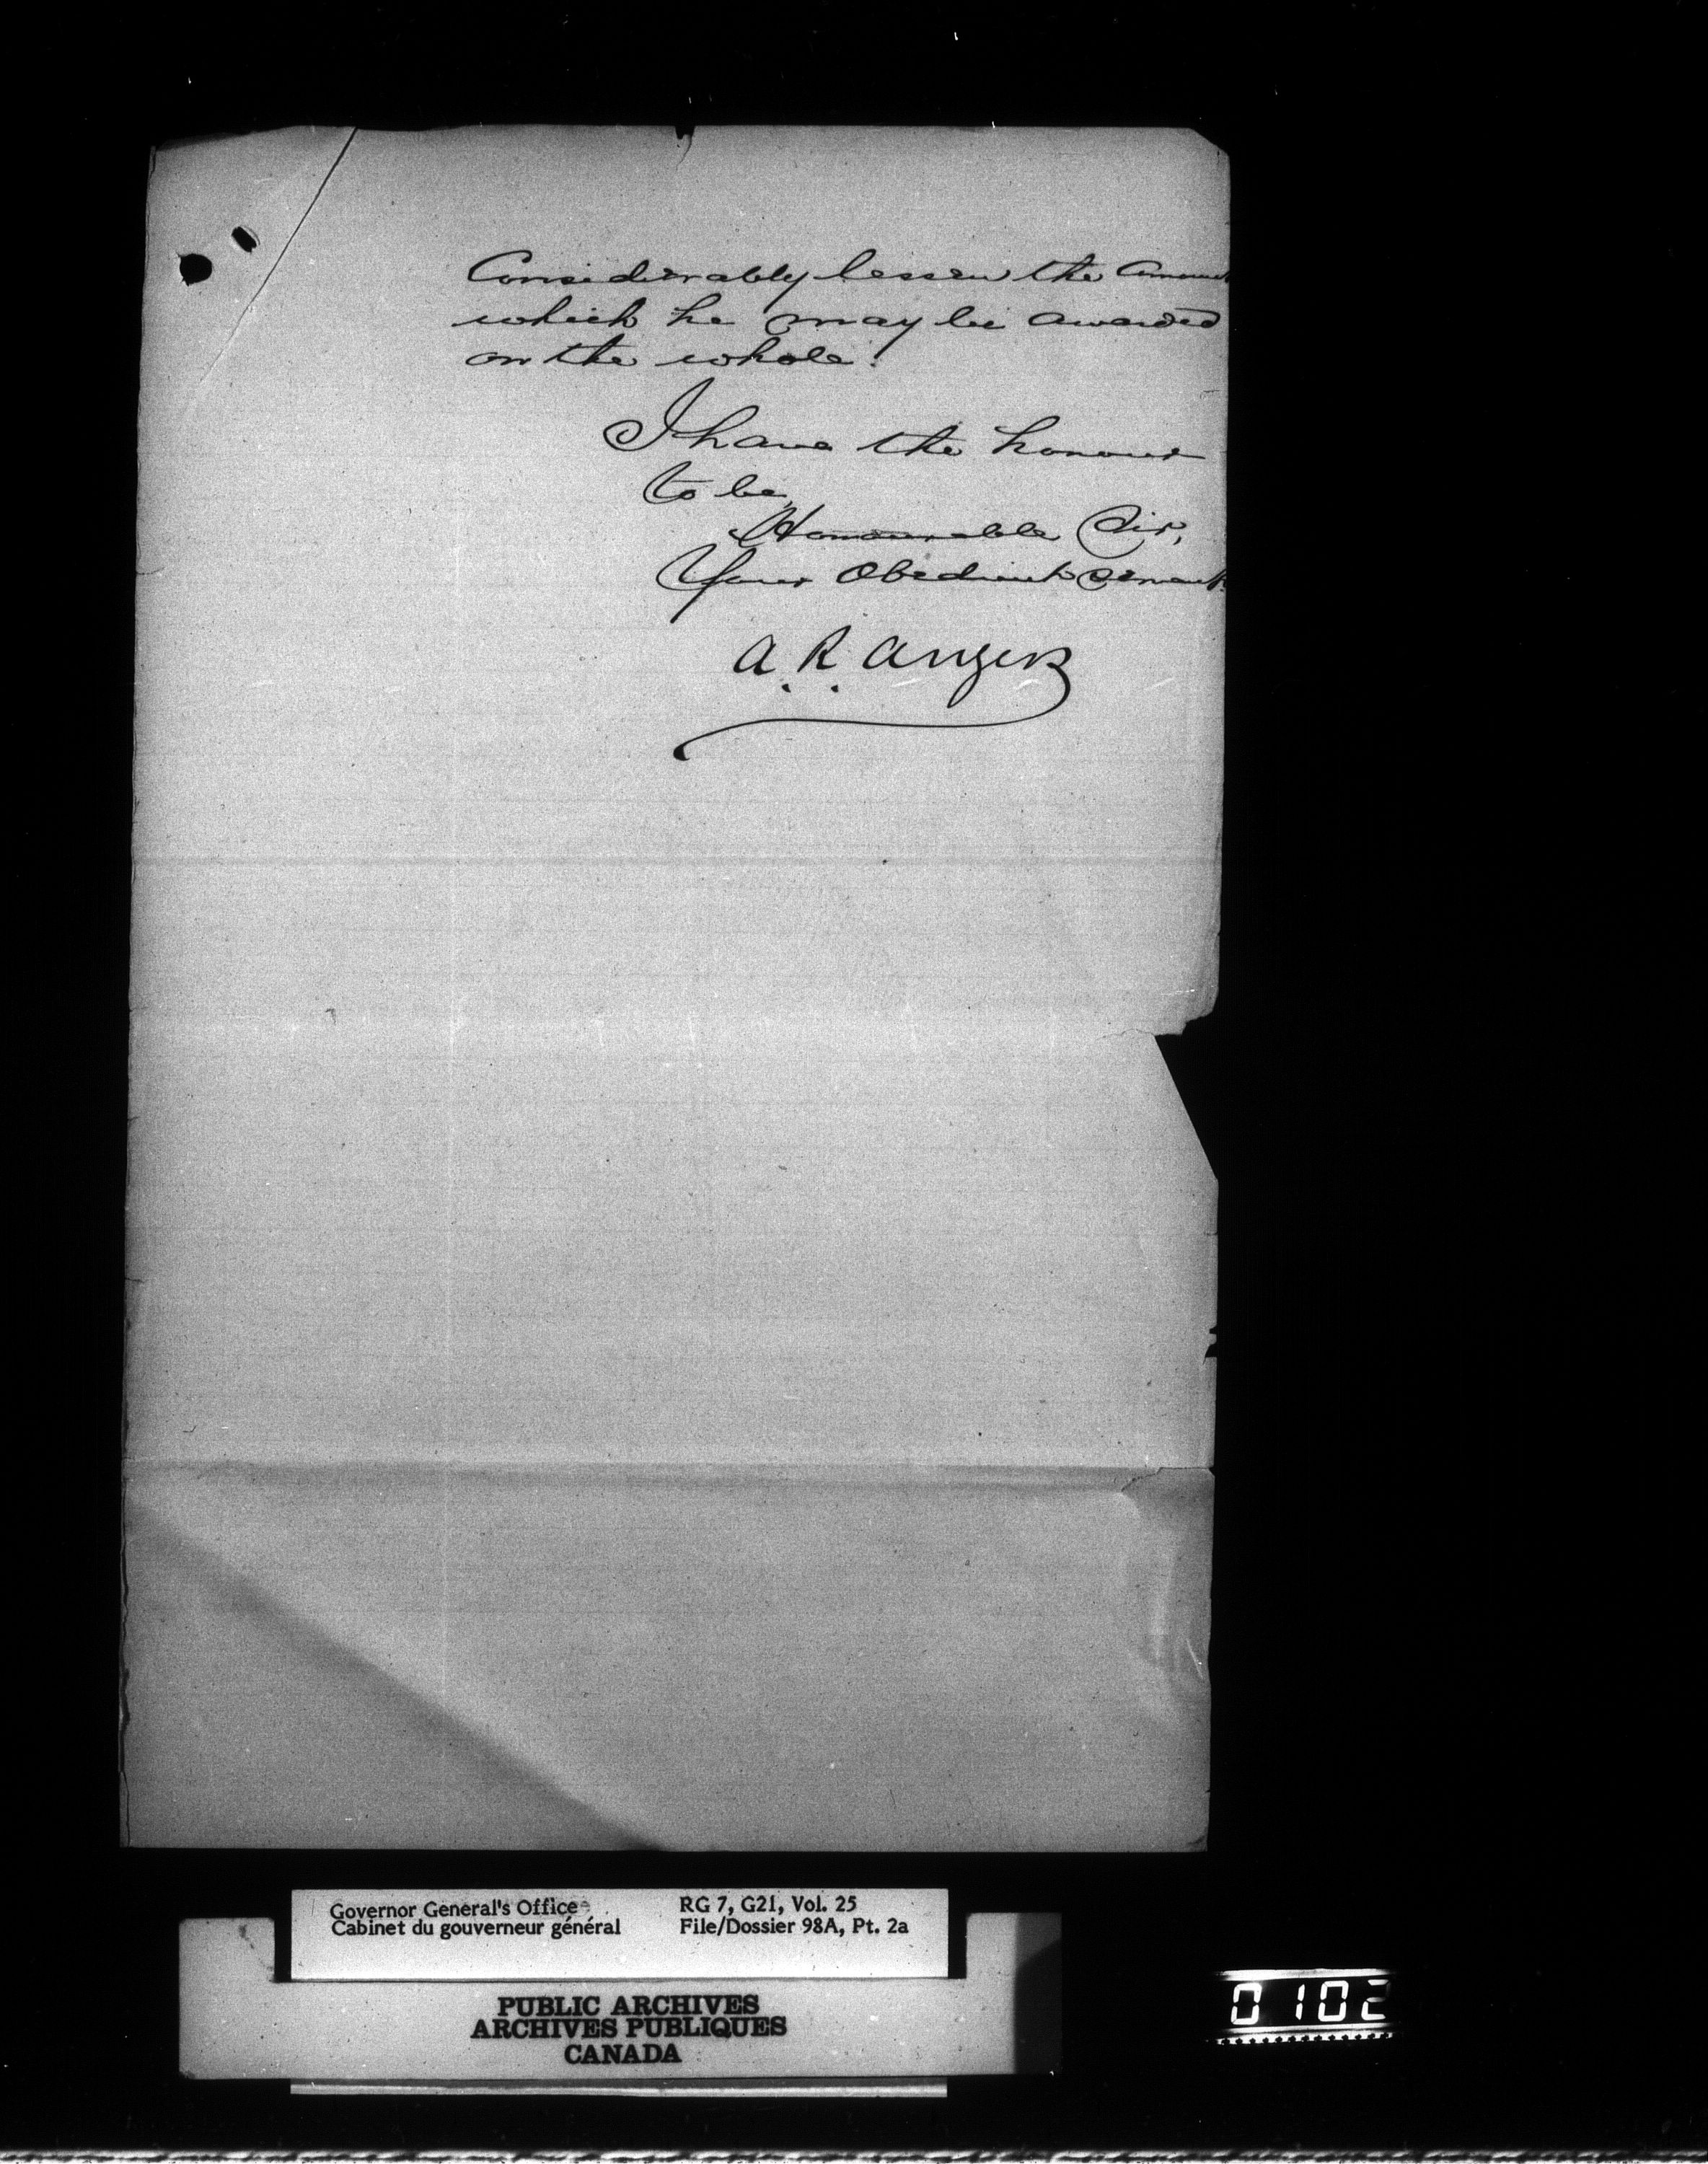 Considerably lessen the Amount
which he may be awarded
on the whole.
I have the honour
to be,
Honourable Sir,
Your Obedient Servant.
A. R. Angers
Governor General's Office
Cabinet du gouverneur général
RG 7, G21, Vol. 25
File/Dossier 98A, Pt. 2a
PUBLIC ARCHIVES
ARCHIVES PUBLIQUES
CANADA
0102